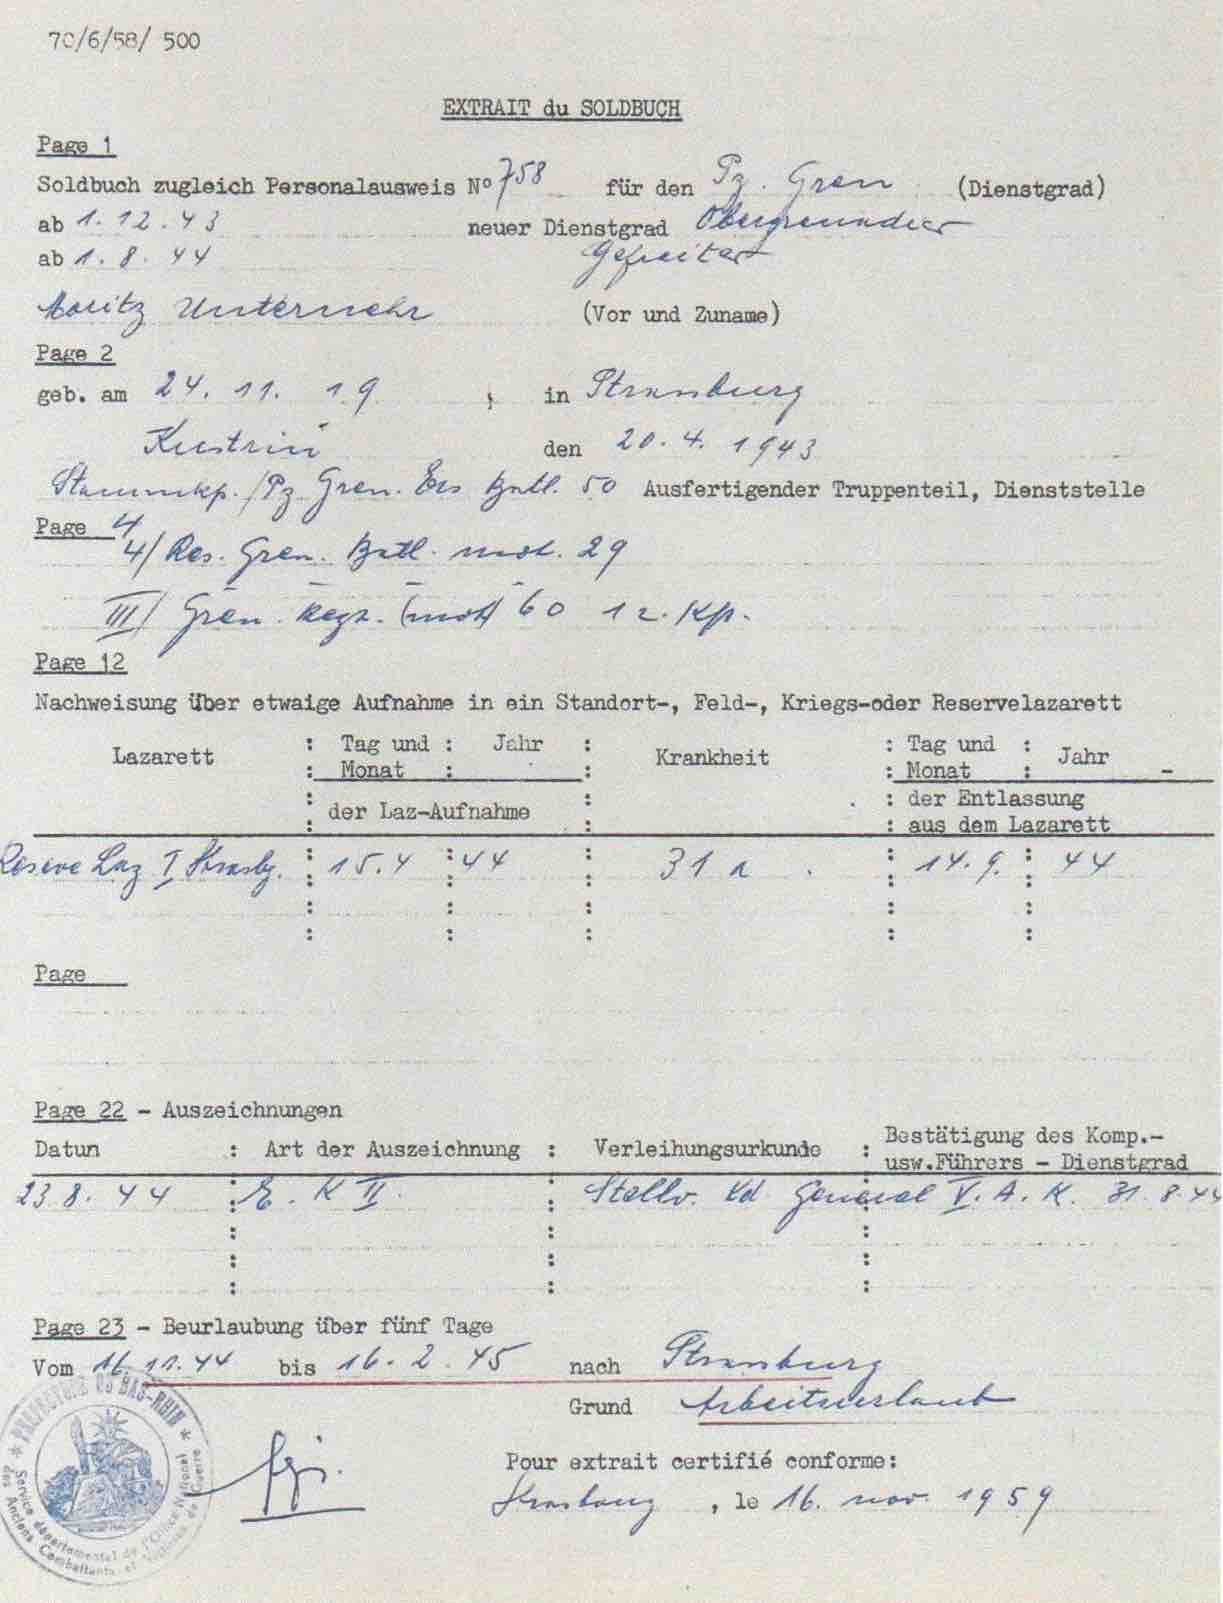 70/6/58/ 500
EXTRAIT du SOLDBUCH
Page 1
Soldbuch zugleich Personalausweis N° 758 für den Pz. Gren (Dienstgrad)
ab 1.12.43 neuer Dienstgrad Obergrenadier
ab 1.8.44 Gefreiter
Moritz Unternehr (Vor und Zuname)
Page 2
geb. am 24.11.19 , in Strassburg
Kustrin den 20.4.1943
Stammkp./Pz. Gren. Ers Batl. 50 Ausfertigender Truppenteil, Dienststelle
Page 4
4/ Res. Gren. Batl. mot. 29
III/ Gren. Regt. (mot) 60 12. Kp.
Page 12
Nachweisung über etwaige Aufnahme in ein Standort-, Feld-, Kriegs-oder Reservelazarett
Lazarett : Tag und : Jahr : Krankheit : Tag und : Jahr -
: Monat : : : Monat :
: der Laz-Aufnahme : : der Entlassung
: : : aus dem Lazarett
Reserve Laz I Strasbg. : 15.4 : 44 : 31 a . : 14.9. : 44
Page
Page 22 - Auszeichnungen
Datun : Art der Auszeichnung : Verleihungsurkunde : Bestätigung des Komp.-
usw.Führers - Dienstgrad
23.8.44 : E. K II. : Stellv. Kd General V. A. K. 31.8.44
Page 23 - Beurlaubung über fünf Tage
Vom 16.11.44 bis 16.2.45 nach Strassburg
Grund Arbeitsurlaub
Pour extrait certifié conforme:
Strasbourg , le 16. nov. 1959
* PREFECTURE DU BAS-RHIN *
Service départemental de l'Office National
des Anciens Combattants et Victimes de Guerre